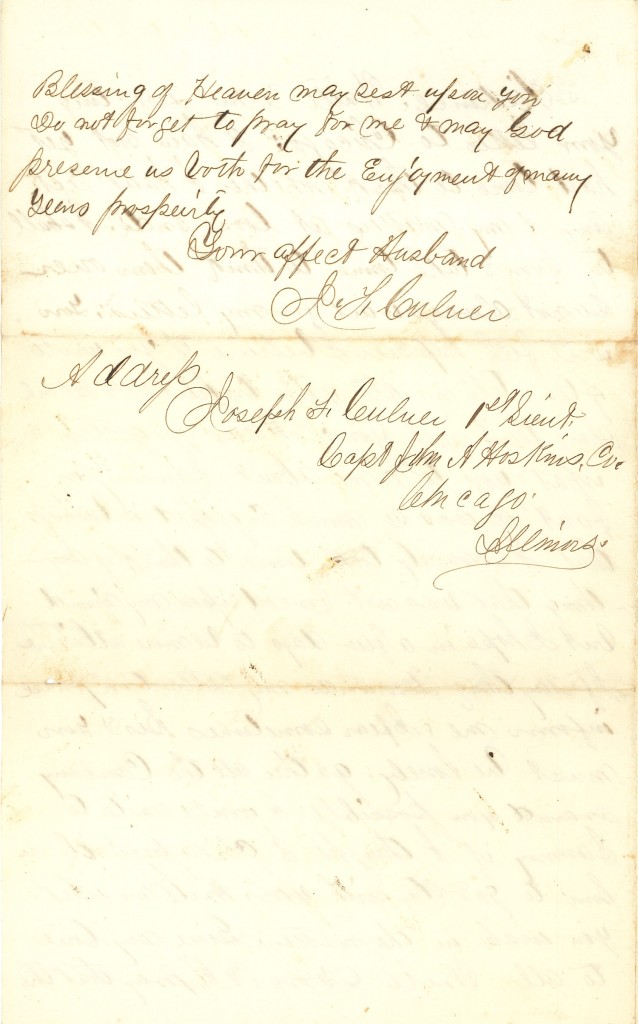 Blessing of Heaven may rest upon you
Do not forget to pray for me & may God
preserve us both for the Enjoyment of many
years prosperity
Your affect Husband
J. F. Culver
Address
Joseph F. Culver 1st Lieut.
Capt John A Hoskins, Co.
Chicago.
Illinois.